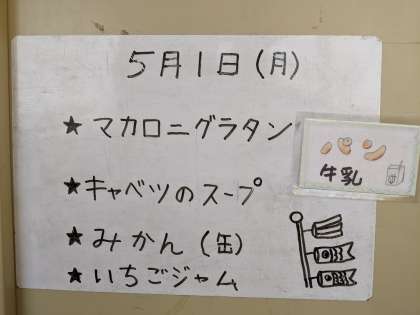 5月1日(月)
★ マカロニグラタン
パン
牛乳
★ キャベツのスープ
★ みかん(缶)
★ いちごジャム